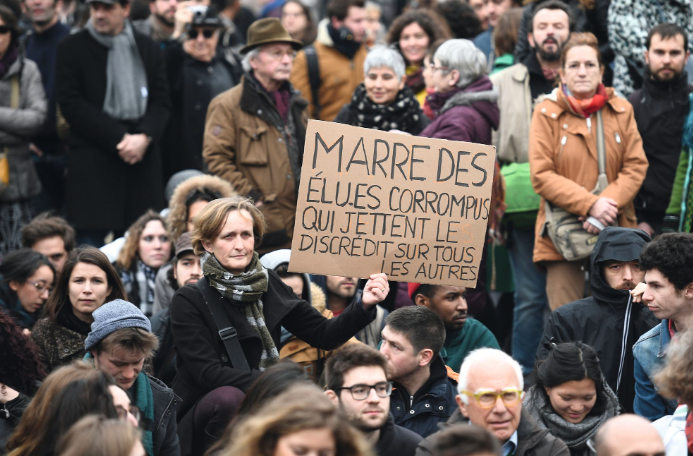 MARRE DES
ÉLU.ES CORROMPUS
QUI JETTENT LE
DISCRÉDIT SUR TOUS
LES AUTRES